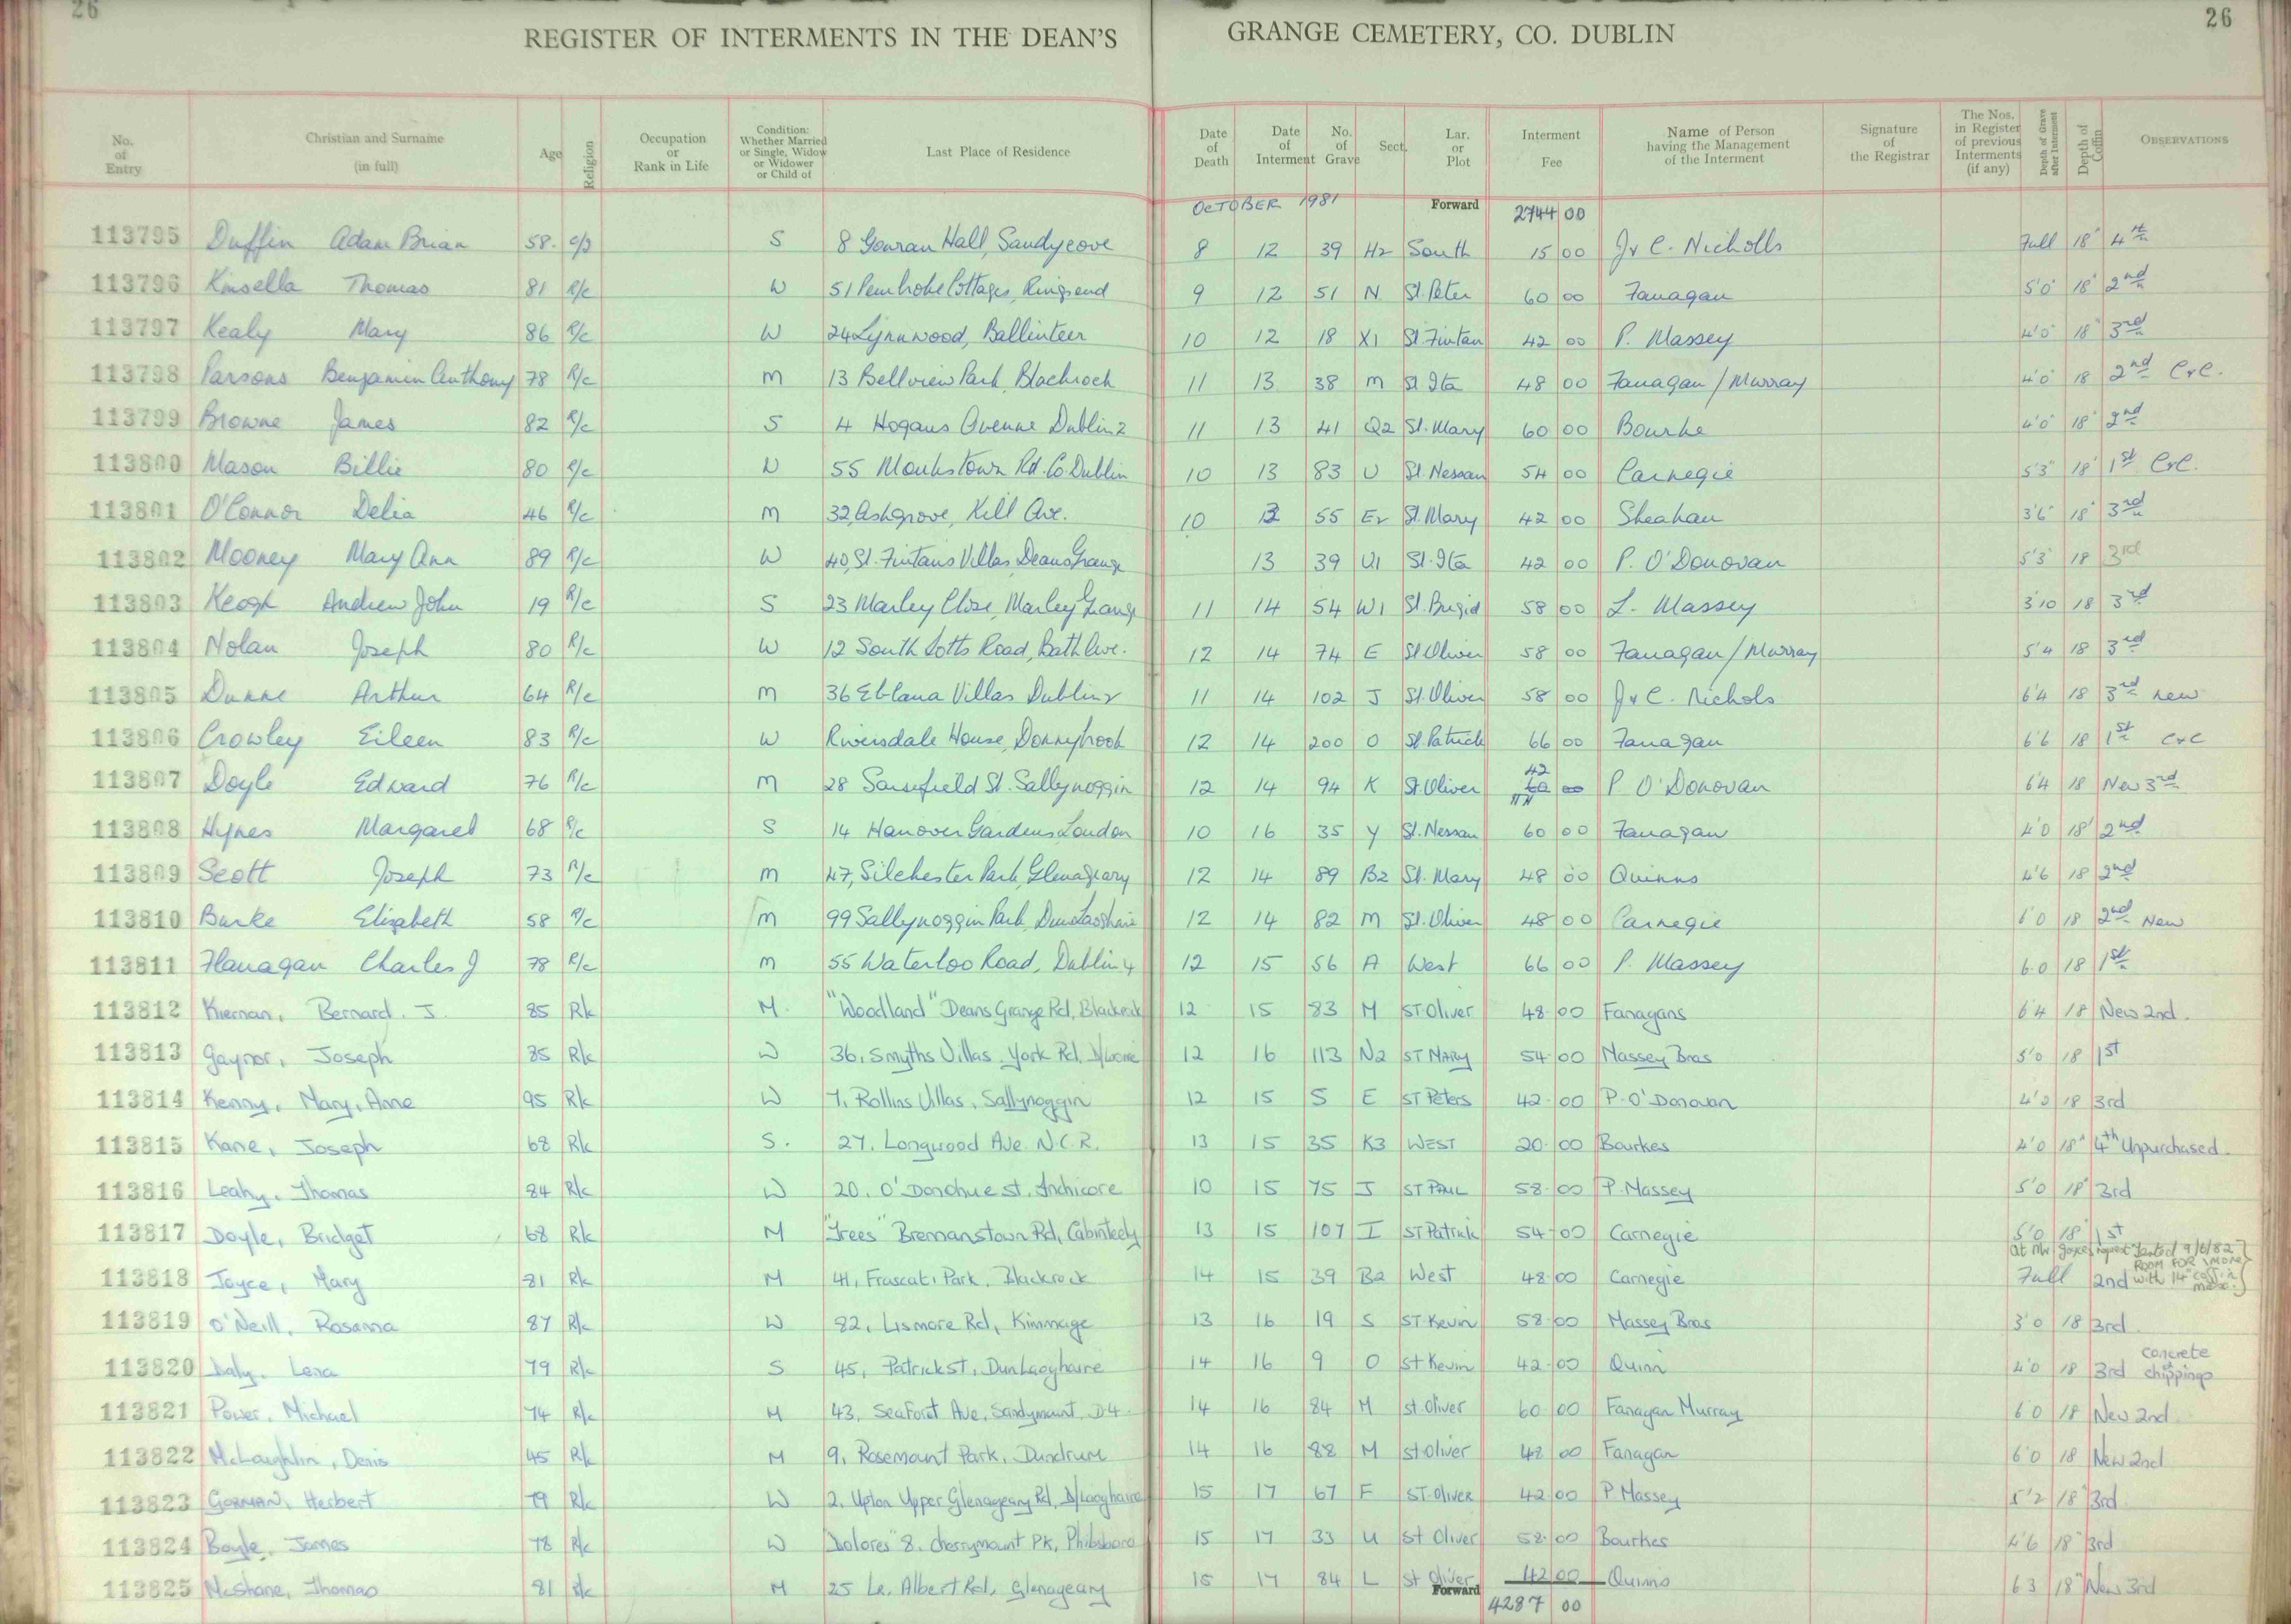 26
26
REGISTER OF INTERMENTS IN THE DEAN'S GRANGE CEMETERY, CO. DUBLIN
No. of Entry | Christian and Surname (in full) | Age | Religion | Occupation or Rank in Life | Condition: Whether Married or Single, Widow or Widower or Child of | Last Place of Residence | Date of Death | Date of Interment | No. of Grave | Sect. | Lar. or Plot | Interment Fee | Name of Person having the Management of the Interment | Signature of the Registrar | The Nos. in Register of previous Interments (if any) | Depth of Grave after Interment | Depth of Coffin | OBSERVATIONS
OCTOBER 1981 Forward 2744 00
113795 Duffin Adam Brian 58. S 8 Gowran Hall, Sandycove 8 12 39 H2 South 15 00 J & C. Nicholls Full 18" 4th
113796 Kinsella Thomas 81 R/c W 51 Pembroke Cottages, Ringsend 9 12 51 N St. Peter 60 00 Fanagan 5'0" 18" 2nd
113797 Kealy Mary 86 R/c W 24 Lynnwood, Ballinteer 10 12 18 X1 St Fintan 42 00 P. Massey 4'0" 18" 3rd
113798 Parsons Benjamin Anthony 78 R/c m 13 Bellview Park, Blackrock 11 13 38 m St Ita 48 00 Fanagan / Murray 4'0" 18 2nd C&C.
113799 Browne James 82 R/c S 4 Hogans Avenue Dublin 2 11 13 41 Q2 St. Mary 60 00 Bourke 4'0" 18" 2nd
113800 Mason Billie 80 R/c W 55 Monkstown Rd. Co. Dublin 10 13 83 U St. Nessan 54 00 Carnegie 5'3" 18" 1st C&C.
113801 O'Connor Delia 46 R/c m 32, Ashgrove, Kill Ave. 10 13 55 E2 St. Mary 42 00 Sheahan 3'6" 18" 3rd
113802 Mooney Mary Ann 89 R/c W 40, St. Fintans Villas, Deans Grange 13 39 U1 St. Ita 42 00 P. O'Donovan 5'3" 18 3rd
113803 Keogh Andrew John 19 R/c S 23 Marley Close, Marley Grange 11 14 54 W1 St. Brigid 58 00 L. Massey 3'10 18 3rd
113804 Nolan Joseph 80 R/c W 12 South Lotts Road, Bath Ave. 12 14 74 E St Oliver 58 00 Fanagan / Murray 5'4 18 3rd
113805 Dunne Arthur 64 R/c m 36 Eblana Villas Dublin 2 11 14 102 J St. Oliver 58 00 J & C. Nichols 6'4 18 3rd new
113806 Crowley Eileen 83 R/c W Riversdale House, Donnybrook 12 14 200 O St. Patrick 66 00 Fanagan 6'6 18 1st C&C
113807 Doyle Edward 76 R/c m 28 Sarsfield St. Sallynoggin 12 14 94 K St. Oliver 42 60 00 P O'Donovan 6'4 18 New 3rd
113808 Hynes Margaret 68 R/c S 14 Hanover Gardens, London 10 16 35 Y St. Nessan 60 00 Fanagan 4'0 18" 2nd
113809 Scott Joseph 73 R/c m 47, Silchester Park, Glenageary 12 14 89 B2 St. Mary 48 00 Quinns 4'6 18 2nd
113810 Burke Elizabeth 58 R/c m 99 Sallynoggin Park, Dun Laoghaire 12 14 82 m St. Oliver 48 00 Carnegie 6'0 18 2nd New
113811 Flanagan Charles J 78 R/c m 55 Waterloo Road, Dublin 4 12 15 56 A West 66 00 P. Massey 6.0 18 1st
113812 Kiernan, Bernard. J. 85 R/c M. "Woodland" Deans Grange Rd, Blackrock 12 15 83 M ST Oliver 48 00 Fanagans 6'4 18 New 2nd.
113813 Gaynor, Joseph 85 R/c W 36, Smyths Villas, York Rd, 12 16 113 N2 ST MARY 54 00 Massey Bros 5'0 18 1st
113814 Kenny, Mary, Anne 95 R/c W 7, Rollins Villas, Sallynoggin 12 15 5 E ST Peters 42 00 P. O'Donovan 18 3rd
113815 Kane, Joseph 68 R/c S. 27. Longwood Ave. N.C.R. 13 15 35 K3 WEST 20 00 Bourkes 4'0 18" 4th Unpurchased.
113816 Leahy, Thomas 84 R/c W 20, O'Donohue St. Inchicore 10 15 75 J ST PAUL 58 00 P. Massey 5'0 18" 3rd
113817 Doyle, Bridget 68 R/c M "Trees" Brennanstown Rd, Cabinteely 13 15 107 I ST Patrick 54 00 Carnegie 5'0 18" 1st
At Mr Joyces request Tested 9/6/82
ROOM FOR 1 MORE
113818 Joyce, Mary 81 R/c M 41, Frascati Park, Blackrock 14 15 39 B2 West 48 00 Carnegie Full 2nd with 14" coffin max.
113819 O'Neill, Rosanna 87 R/c W 82, Lismore Rd, Kimmage 13 16 19 S ST Kevin 58 00 Massey Bros 3'0 18 3rd
113820 Daly, Lena 79 R/c S 45, Patrick St, Dun Laoghaire 14 16 9 O St Kevin 42 00 Quinn 4'0 18 3rd concrete & chippings
113821 Power, Michael 74 R/c M 43, Seafort Ave, Sandymount, D4. 14 16 84 M St. Oliver 60 00 Fanagan Murray 6'0 18 New 2nd
113822 McLaughlin, Denis 45 R/c M 9, Rosemount Park, Dundrum 14 16 88 M St Oliver 48 00 Fanagan 6'0 18 New 2nd
113823 GORMAN, Herbert 79 R/c W 2, Upton Upper Glenageary Rd, D/Laoghaire 15 17 67 F ST. OLIVER 42 00 P Massey 5'2 18" 3rd
113824 Boyle, James 78 R/c W "Dolores" 8. Cherrymount Pk, Phibsboro 15 17 33 U St Oliver 58 00 Bourkes 4'6 18" 3rd
113825 McShane, Thomas 81 R/c M 25 Lr. Albert Rd, Glenageary 15 17 84 L St Oliver 42 00 Quinns 6'3 18" New 3rd
Forward 4287 00